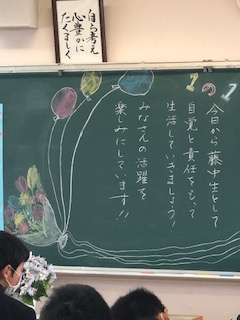 自ら考え
心豊かに
たくましく
1の1
今日から藤中生として
自覚と責任をもって
生活していきましょう!
みなさんの活躍を
楽しみにしています!!